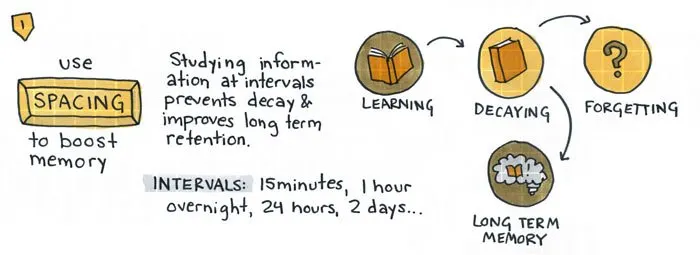 1
use
SPACING
to boost
memory
Studying inform-
ation at intervals
prevents decay &
improves long term
retention.
INTERVALS: 15minutes, 1 hour
overnight, 24 hours, 2 days...
LEARNING
DECAYING
?
FORGETTING
LONG TERM
MEMORY